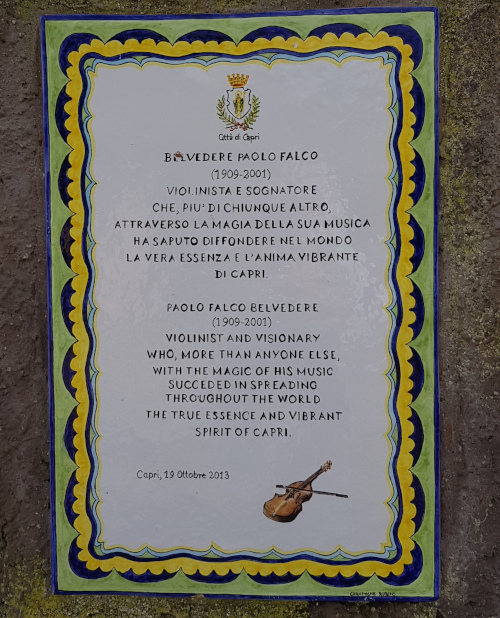 Città di Capri
BELVEDERE PAOLO FALCO
(1909-2001)
VIOLINISTA E SOGNATORE
CHE, PIU' DI CHIUNQUE ALTRO,
ATTRAVERSO LA MAGIA DELLA SUA MUSICA
HA SAPUTO DIFFONDERE NEL MONDO
LA VERA ESSENZA E L'ANIMA VIBRANTE
DI CAPRI.
PAOLO FALCO BELVEDERE
(1909-2001)
VIOLINIST AND VISIONARY
WHO, MORE THAN ANYONE ELSE,
WITH THE MAGIC OF HIS MUSIC
SUCCEDED IN SPREADING
THROUGHOUT THE WORLD
THE TRUE ESSENCE AND VIBRANT
SPIRIT OF CAPRI.
Capri, 19 Ottobre 2013